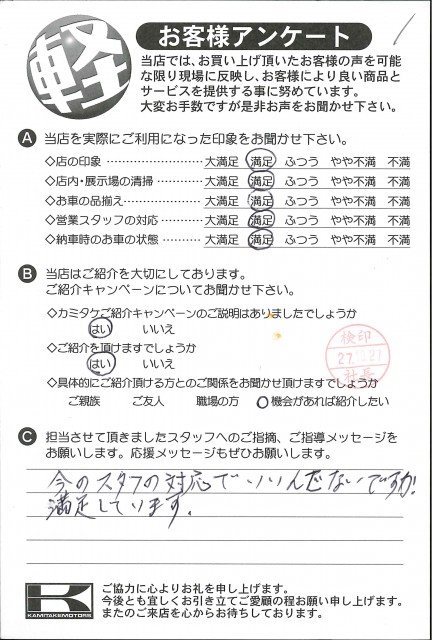 軽
お客様アンケート
当店では、お買い上げ頂いたお客様の声を可能
な限り現場に反映し、お客様により良い商品と
サービスを提供する事に努めています。
大変お手数ですが是非お声をお聞かせ下さい。
A 当店を実際にご利用になった印象をお聞かせ下さい。
◇店の印象 …………………… 大満足 満足 ふつう やや不満 不満
◇店内・展示場の清掃………… 大満足 満足 ふつう やや不満 不満
◇お車の品揃え………………… 大満足 満足 ふつう やや不満 不満
◇営業スタッフの対応………… 大満足 満足 ふつう やや不満 不満
◇納車時のお車の状態 ……… 大満足 満足 ふつう やや不満 不満
B 当店はご紹介を大切にしてあります。
ご紹介キャンペーンについてお聞かせ下さい。
◇カミタケご紹介キャンペーンのご説明はありましたでしょうか
はい いいえ
◇ご紹介を頂けますでしょうか
はい いいえ
検印
社長
◇具体的にご紹介頂ける方とのご関係をお聞かせ頂けますでしょうか
ご親族 ご友人 職場の方 機会があれば紹介したい
C 担当させて頂きましたスタッフへのご指摘、ご指導メッセージを
お願いします。応援メッセージもぜひお願いします。
今のスタフの対応でいいんだないですか!
満足しています.
K
KAMITAKEMOTORS
ご協力に心よりお礼を申し上げます。
今後とも宜しくお引き立てご愛顧の程お願い申し上げます。
またのご来店を心からお待ちしております。